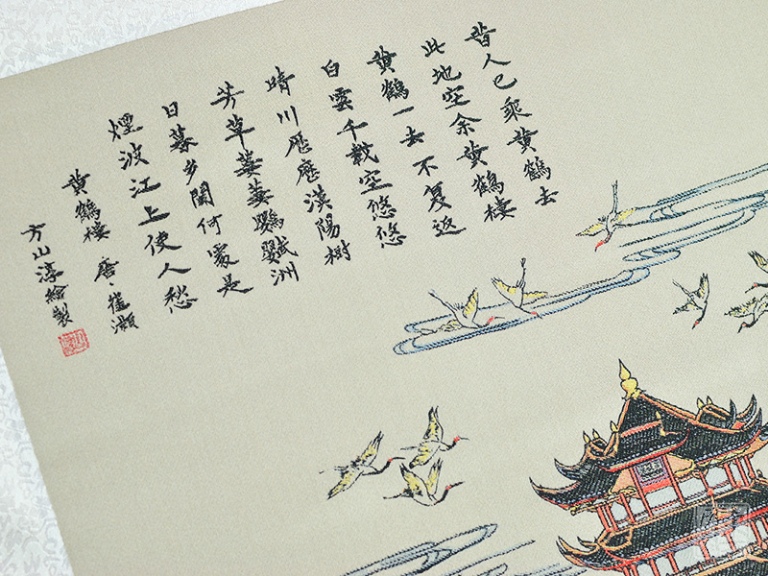 昔人已乘黄鶴去
此地空余黄鶴楼
黄鶴一去不复返
白雲千載空悠悠
晴川歷歷漢陽樹
芳草萋萋鸚鵡洲
日暮乡関何處是
煙波江上使人愁
黄鶴楼 唐、崔灏
方山淳繪製